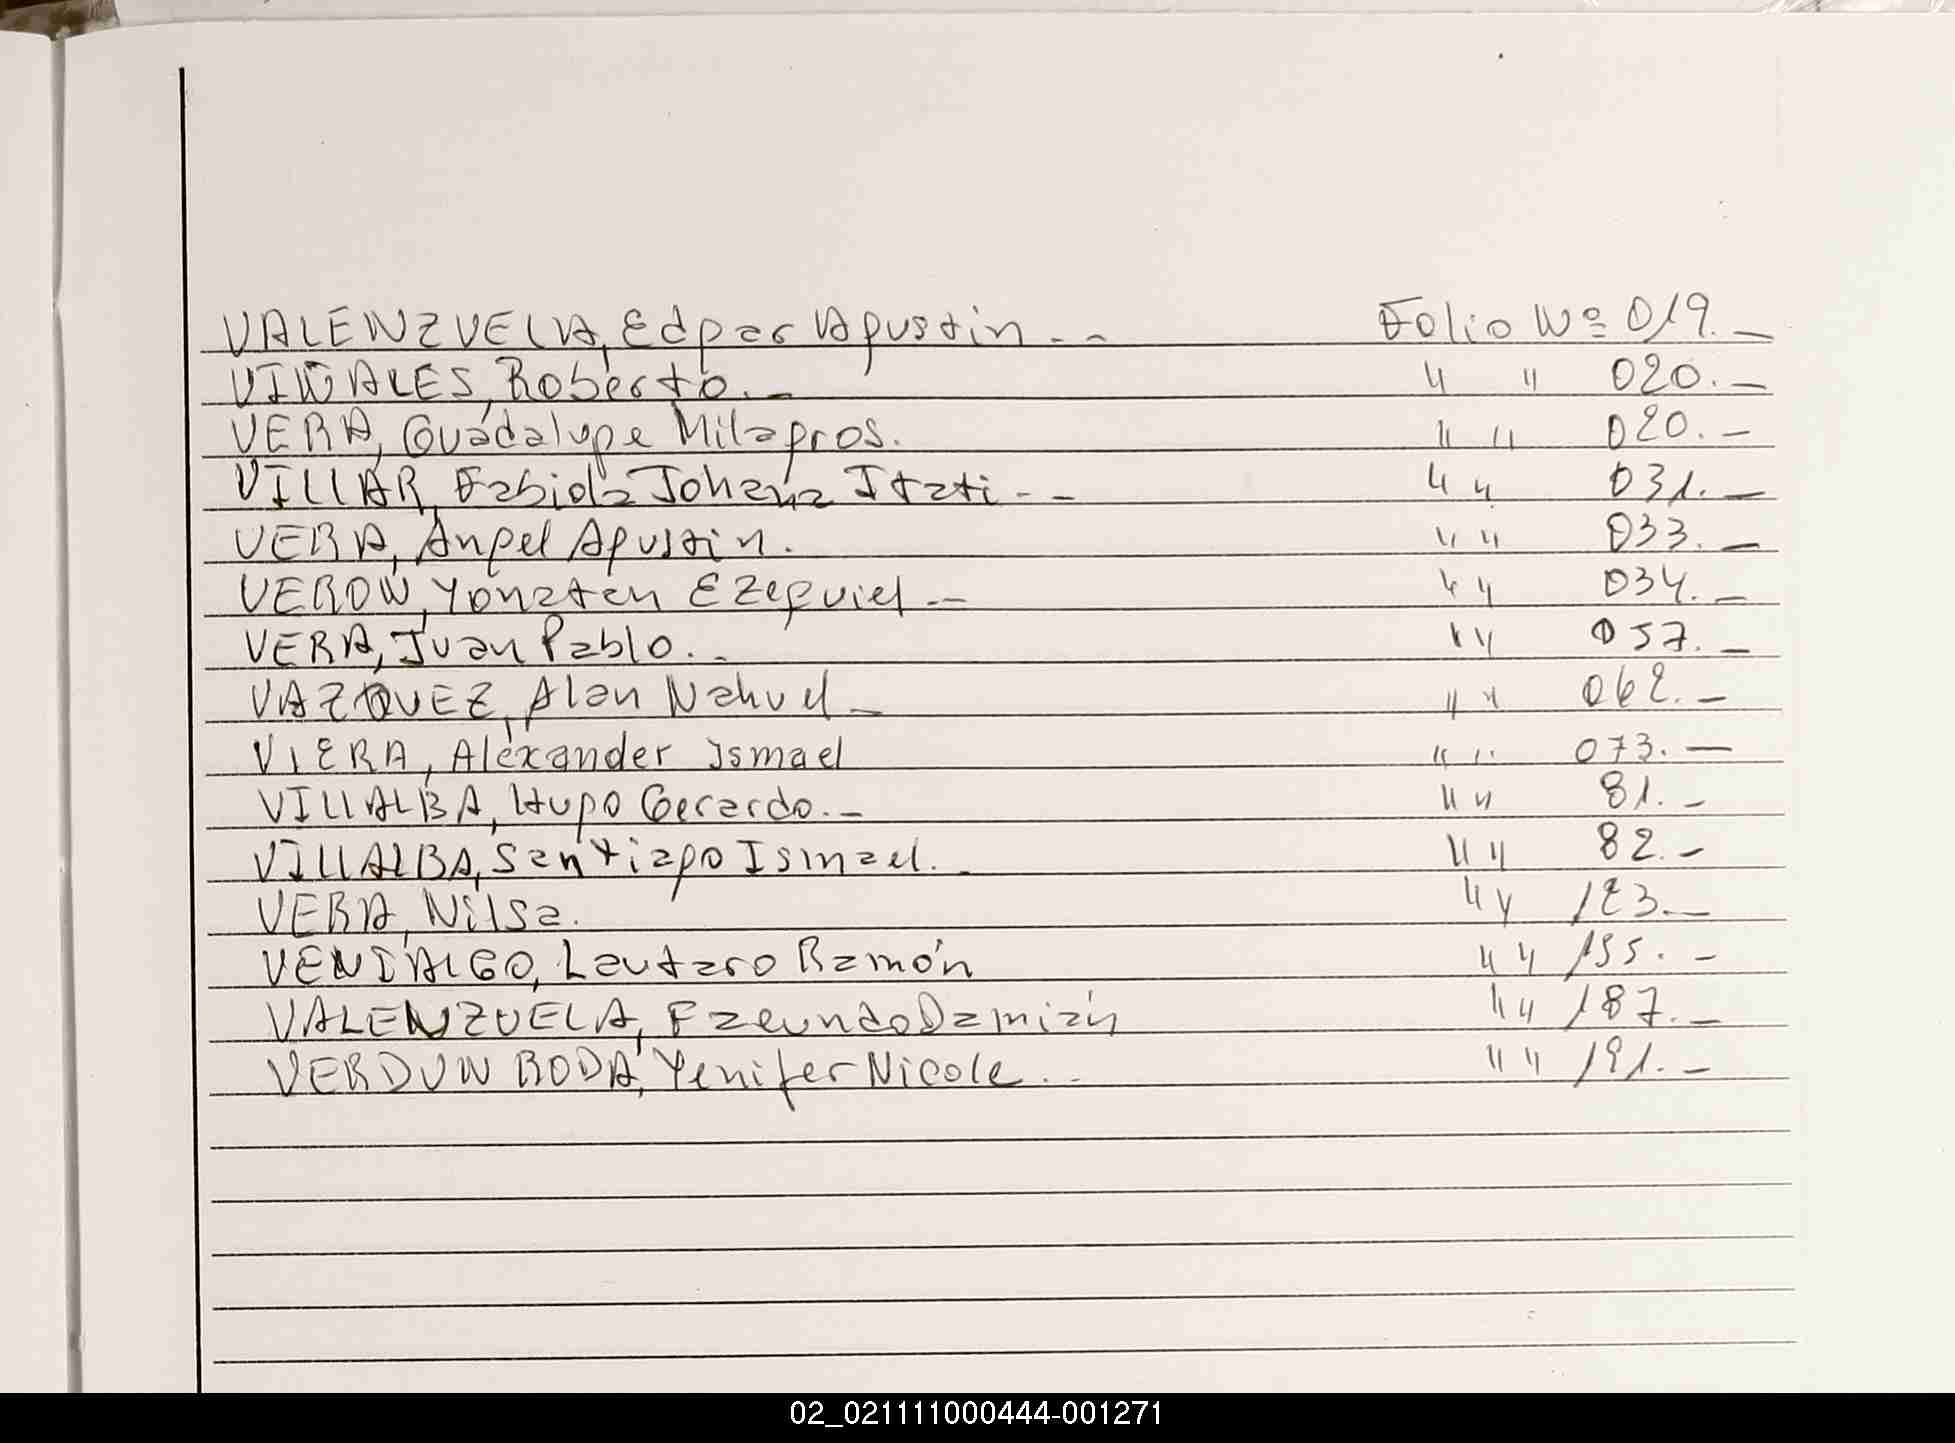 VALENZUELA, Edgar Agustin. - - Folio Nº 019. -
VIÑALES, Roberto. - " " 020. -
VERA, Guadalupe Milagros. " " 020. -
VILLAR, Fabiola Johana Itati - - " " 031. -
VERA, Angel Agustin. " " 033. -
VERON, Yonatan Ezequiel - - " " 034. -
VERA, Juan Pablo. - " " 057. -
VAZQUEZ, Alan Nahuel - " " 062. -
VIERA, Alexander Ismael " " 073. -
VILLALBA, Hugo Gerardo. - " " 81. -
VILLALBA, Santiago Ismael. - " " 82. -
VERA, Nilsa. " " 123. -
VENIALGO, Lautaro Ramón " " 155. -
VALENZUELA, Facundo Damián " " 187. -
VERDUN RODA, Yenifer Nicole. - " " 191. -
02_021111000444-001271